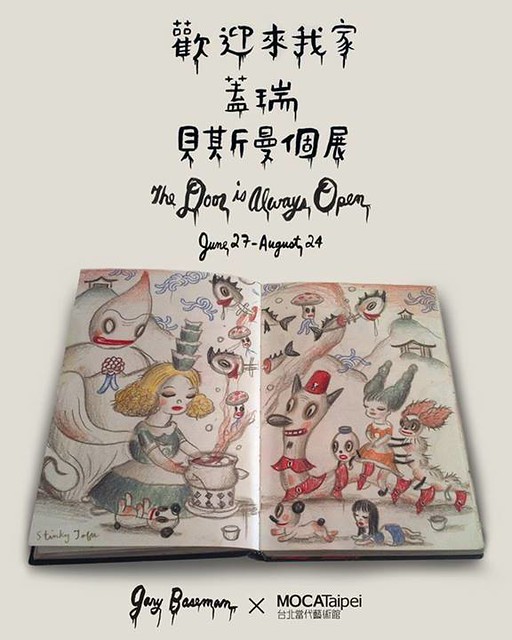 歡迎來我家
蓋瑞
貝其斯曼個展
The Door is Always Open
June 27-August 24
Stinky Tofu
Gary Baseman × MOCATaipei
台北當代藝術館